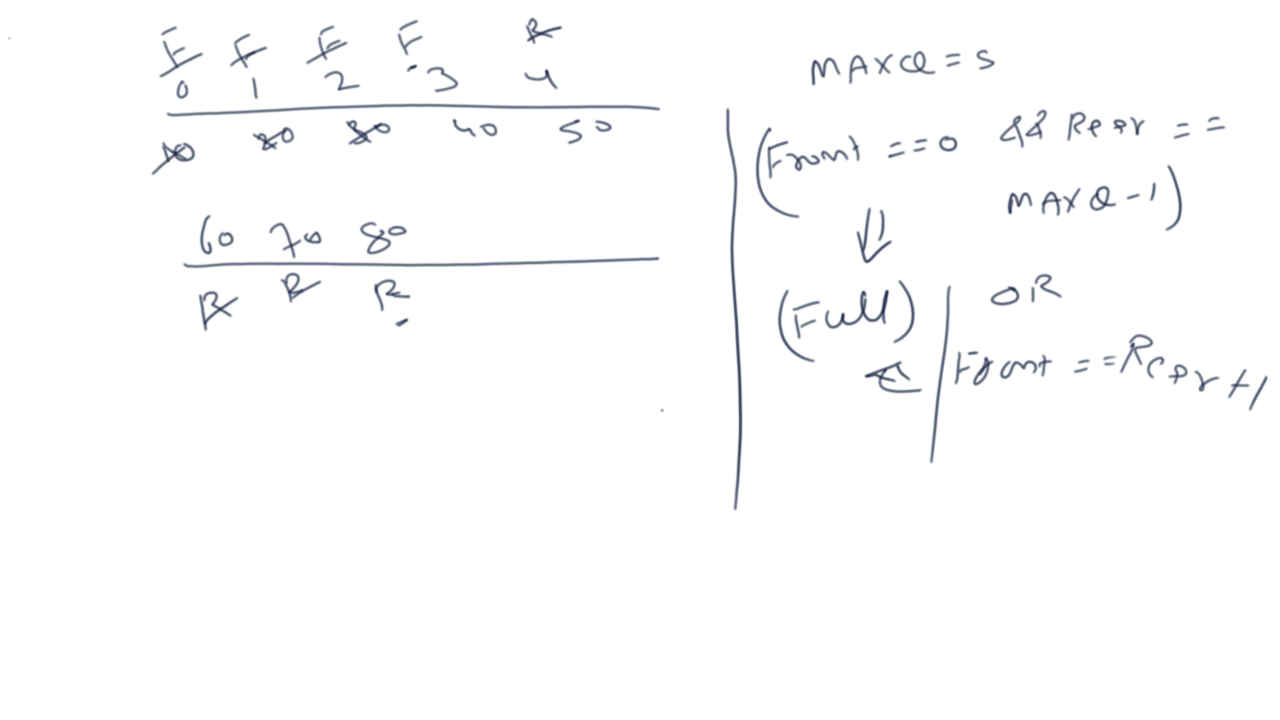 F F F F R
0 1 2 3 4
10 20 30 40 50
60 70 80
R R R
MAXQ = 5
(Front == 0 && Rear ==
MAXQ - 1)
(Full)
OR
Front == Rear + 1